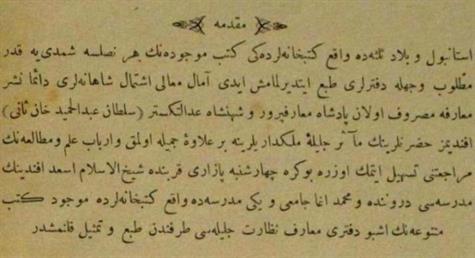 مقدمه
استانبول و بلاد ثلثه‌ده واقع كتبخانه‌لرده‌كی كتب موجوده‌نك هر نصلسه شمدی‌یه قدر
مطلوب وجهله دفترلری طبع ایتدیرلمامش ایدی آمال معالی اشتمال شاهانه‌لری دائما نشر
معارفه مصروف اولان پادشاه معارفپرور و شهنشاه عدالتكستر (سلطان عبدالحمید خان ثانی)
افندیمز حضرتلرینك مآثر جلیلهٔ ملكدارلرینه بر علاوهٔ جمیله اولمق وارباب علم ومطالعه‌نك
مراجعتنی تسهیل ایتمك اوزره بوكره چهارشنبه پازاری قربنده شیخ‌الاسلام اسعد افندینك
مدرسه‌سی دروننده و محمد اغا جامعی و یكی مدرسه‌ده واقع كتبخانه‌لرده موجود كتب
متنوعه‌نك اشبو دفتری معارف نظارت جلیله‌سی طرفندن طبع و تمثیل قلنمشدر